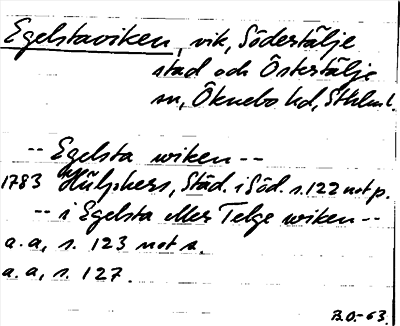 Egelstaviken, vik, Södertälje
stad och Östertälje
sn, Öknebo hd, Sthlms l.
-- Egelsta wiken --
1783 Hülphers, Städ. i Söd. s. 122 not p.
-- i Egelsta eller Telge wiken --
a. a, s. 123 not a.
a. a, s. 127.
B.O.-63.